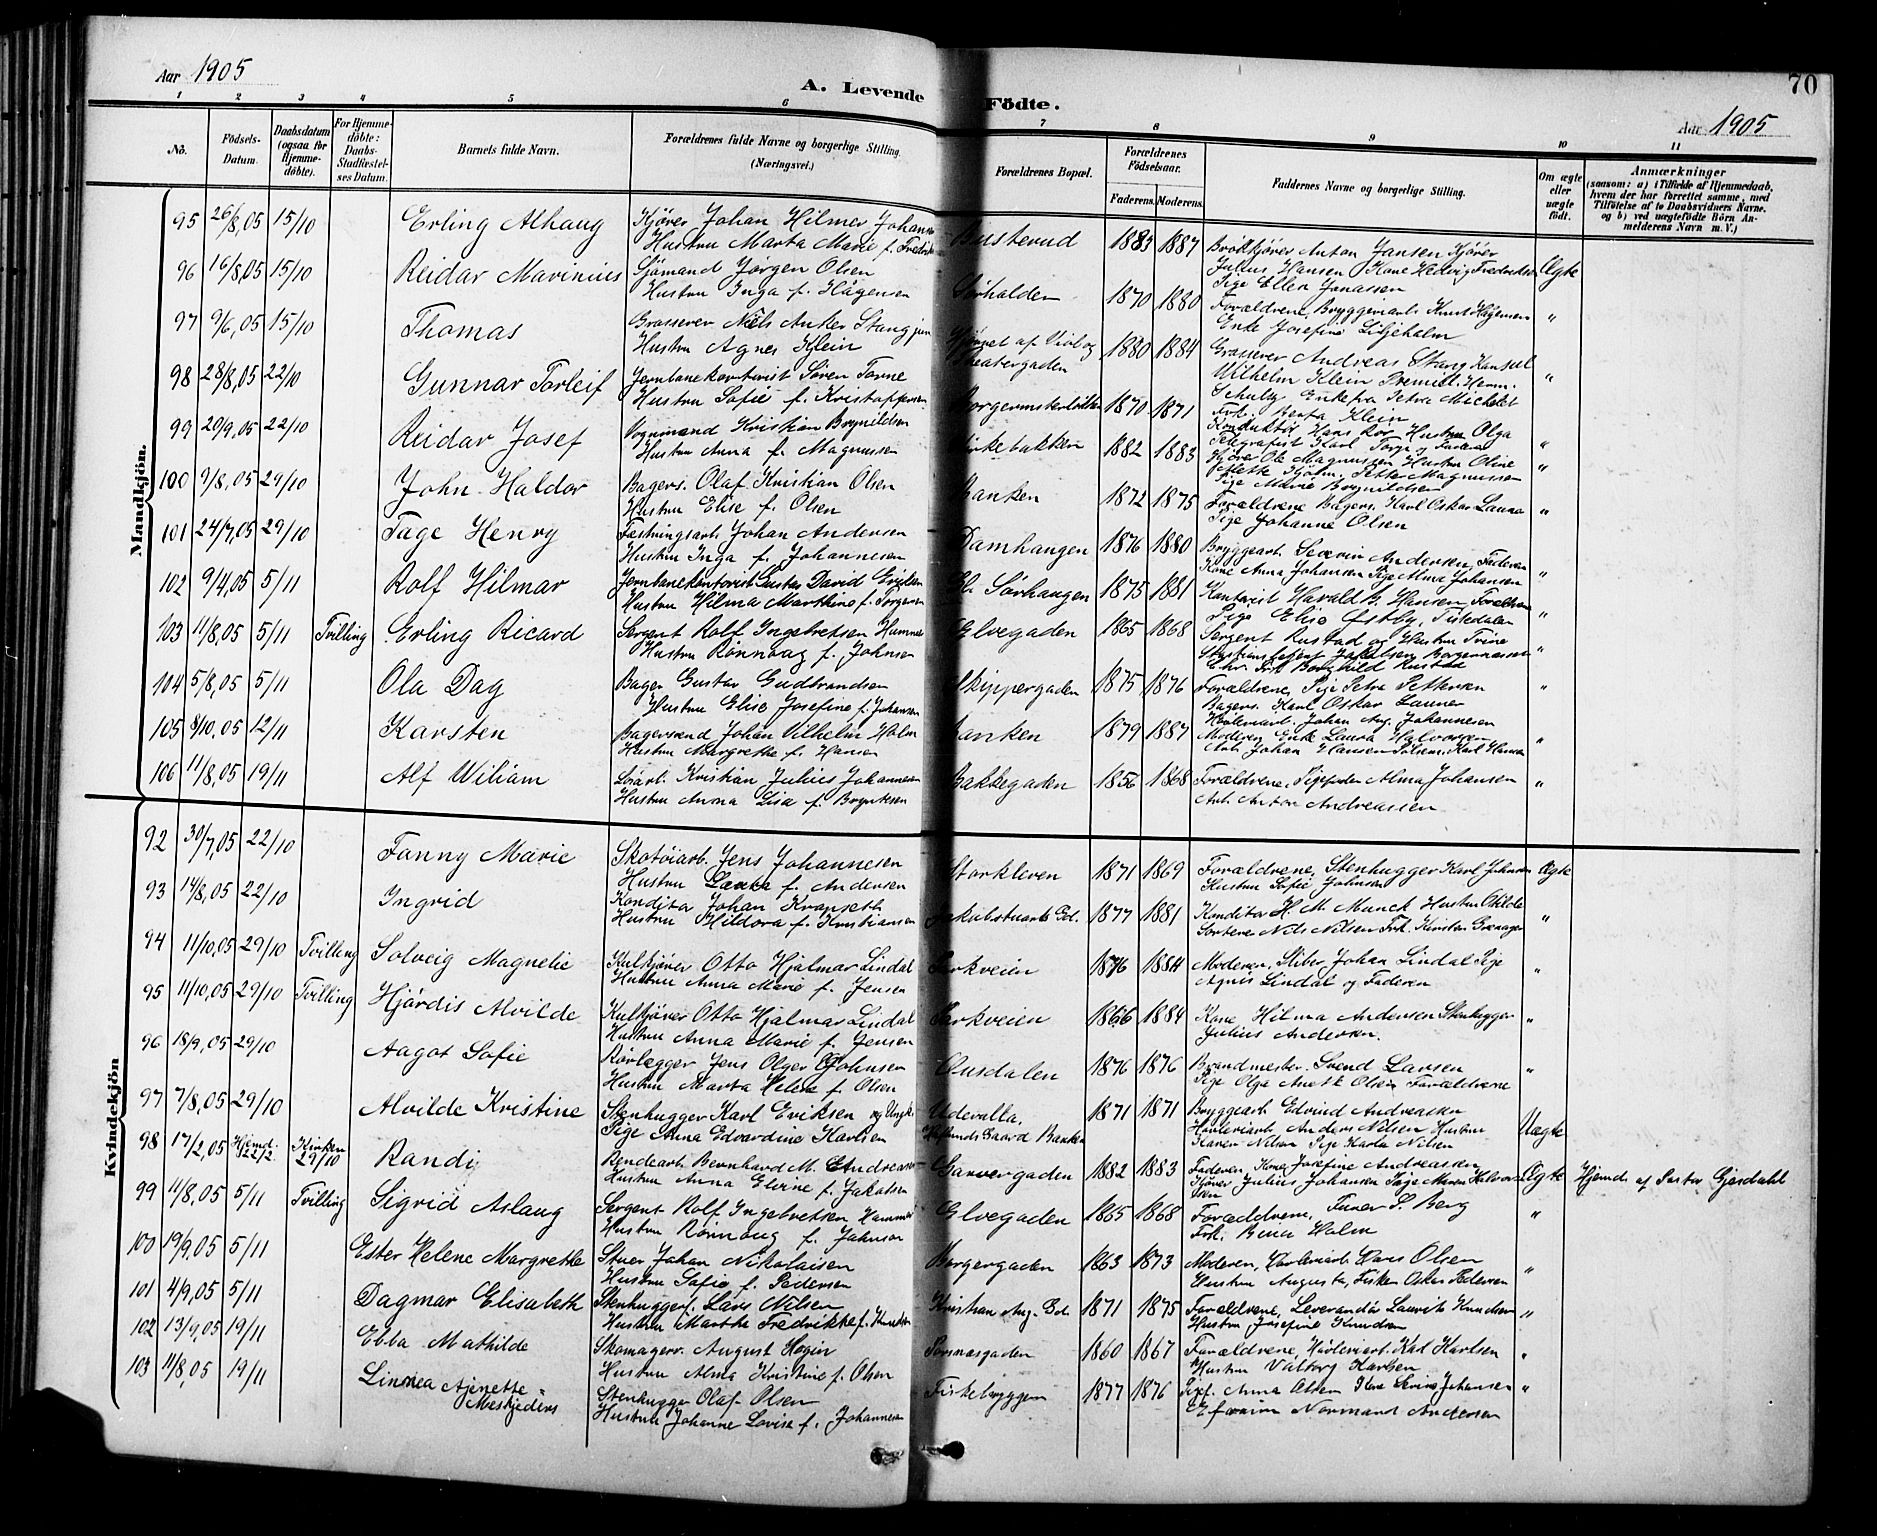 Aar 1905
A. Levende Fødte.
70
Aar 1905
1 2 3 4 5 6 7 8 9 10 11
No.
Fødsels-Datum.
Daabsdatum (ogsaa for Hjemmedøbte).
For Hjemmedøbte: Daabs-Stadfæstelses Datum.
Barnets fulde Navn.
Forældrenes fulde Navne og borgerlige Stilling. (Næringsvei.)
Forældrenes Bopæl.
Forældrenes Fødselsaar.
Faderens. Moderens.
Faddernes Navne og borgerlige Stilling.
Om ægte eller uægte født.
Anmærkninger
(saasom: a) i Tilfælde af Hjemmedaab, hvem der har forrettet samme, med Tilføielse af to Daabsvidners Navne, og b) ved uægtefødte Børn Anmelderens Navn m. V.)
Mandkjøn.
95 26/8,05 15/10 Erling Alhaug Kjører Johan Hilmer Johans Busterud 1883 1887 Brøkkjører Anton Jansen Kjører
Hustru Marta Marie f. Fredrik Julius Hansen Kone Hedvig Fredriksen Ægte
96 16/8,05 15/10 Reidar Marinius Sjømand Jørgen Olsen Sørhalden 1870 1880 Pige Ellen Janassen
Hustru Inga f. Hågensen Forældrene, Bryggeriarb. Knut Hagensen "
97 9/6,05 15/10 Thomas Grosserer Niels Anker Stang jun 1880 1884 Enke Josefine Liljeholm
Hustru Agnes Klein Theatergaden Grosserer Andreas Stang Konsul
98 28/8,05 22/10 Gunnar Torleif Jernbanekontorist Søren Torne 1870 1871 Wilhelm Klein Premierl. Herm. "
Hustru Sofie f. Kristoffersen Schultz Enkefru Petra Michelet
99 20/9,05 22/10 Reidar Josef Vognmand Kristian Bognildsen Kirkebakken 1882 1883 Frk. Berta Klein
Hustru Anna f. Magnussen Konduktør Hans Roe Hustru Olga
100 9/8,05 29/10 John Haldor Bagers. Olaf Kristian Olsen Banken 1872 1875 Telegrafist Karl Torp og Faderen "
Hustru Elise f. Olsen Kjører Ole Magnussen Hustru Oline "
Petter Magnussen
Pige Marie Bognildsen
Forældrene Bagers. Karl Oskar Launer "
Pige Johanne Olsen
101 24/7,05 29/10 Tage Henry Fæstningsarb. Johan Andersen Damhaugen 1876 1880 Bryggearb. Severin Andersen, Faderen
Hustru Inga f. Johannesen Kone Anna Johansen Pige Alma Johansen "
102 9/4,05 5/11 Rolf Hilmar Jernbanekontorist Gustav David Eriksen Sørhaugen 1875 1881 Kontorist Harald B. Hansen, Foreldrene
Hustru Hilma Marthine f. Torgersen Pige Elise Østby, Tistedalen "
103 11/8,05 5/11 Tvilling Erling Ricard Sergent Rolf Ingebretsen Hammer Elvegaden 1865 1868 Sergent Rustad og Hustru Trine
Hustru Rønnaug f. Johnsen Jakobsen Borgermester "
Chr. Frk. Borghild Rustad
104 5/8,05 5/11 Ola Dag Bager Gustav Gudbrandsen Skippergaden 1875 1876 Forældrene, Pige Petra Pettersen "
Hustru Elise Josefine f. Johansen Bagers. Karl Oskar Launer
105 8/10,05 12/11 Karsten Bagersvend Johan Vilhelm Holm Banken 1879 1887 Høvleriarb. Johan Aug. Johannesen
Hustru Margrethe f. Hansen Moderen Enke Laura Halvorsen "
Arb. Johan Hansen Karl Hansen
106 11/8,05 19/11 Alf Wiliam Kristian Julius Johannesen Bakkegaden 1856 1868 Forældrene, Alma Johansen "
Hustru Anna Lisa f. Boyntesen Arb. Anton Andreassen
Kvindekjøn
92 30/7,05 22/10 Fanny Marie Skotøiarb. Jens Johannesen Storkleven 1871 1869 Forældrene, Stenhugger Karl Johnsen Ægte
Hustru Laura f. Andersen Hustru Sofie Johnsen
93 14/8,05 22/10 Ingrid Konditor Johan Kranseth Jakobstuarts Gd. 1877 1881 Konditor H. M. Munck Hustru Otilde "
Hustru Hildora f. Kristiansen Nils Nilsen Frk. Kirsten
94 11/10,05 29/10 Tvilling Solveig Magnelie Kulkjører Otto Hjalmar Lindal Parkveien 1876 1884 Moderen, Sliber Johan Lindal Pige "
Hustru Anna Marie f. Jensen Agnes Lindal og Faderen
95 11/10,05 29/10 Tvilling Hjørdis Alvilde Kulkjører Otto Hjalmar Lindal Parkveien 1866 1884 Kone Hilma Andersen Stenhugger "
Hustru Anna Marie f. Jensen Julius Andersen.
96 18/9,05 29/10 Aagot Sofie Rørlægger Jens Olger Johnsen Ousdalen 1876 1876 Brandmester Svend Larsen "
Hustru Marta Helene f. Olsen Pige Olga Anette Olsen Forældrene
97 7/8,05 29/10 Alvilde Kristine Stenhugger Karl Eriksen og Ungk. Udevalla, 1871 1871 Bryggearb. Edvind Andreassen
Pige Anna Edvardine Karlsen Gaard Banken Høvleriarb. Anders Nilsen Hustru Uægte
Karen Nilsen Pige Karla Nilsen
98 17/2,05 Hjemd. 22/2. Kirken 29/10 Randi Rendearb. Bernhard M. Andreassen Garvergaden 1882 1883 Faderen, Kone Josefine Andreassen Ægte Hjemd. af Pastor Gjesdahl
Hustru Anna Elvine f. Jakobsen Kjører Julius Johansen Pige Maren Halvorsen
99 11/8,05 5/11 Tvilling Sigrid Aslaug Sergent Rolf Ingebretsen Hammer Elvegaden 1865 1868 Forældrene, Furer S. Berg "
Hustru Rønnaug f. Johnson Frk. Bina Holm
100 19/9,05 5/11 Ester Helene Margrethe Stuer Johan Nikolaisen Borgergaden 1863 1873 Moderen, Høvleriarb. Hans Olsen "
Hustru Sofie f. Pedersen Hustru Augusta, Fisker Oskar Pedersen
101 4/9,05 5/11 Dagmar Elisabeth Stenhugger. Lars Nilsen Kristian Aug. Gd. 1871 1875 Forældrene, Leverandør Laurits Knudsen "
Hustru Marthe Fredrikke f. Knudsen Hustru Josefine Knudsen
102 13/9,05 19/11 Ebba Mathilde Skomagerv. August Høgin Vørsnæsgaden 1860 1867 Forældrene, Høvleriarb. Karl Karlsen "
Hustru Alma Kristine f. Olsen Hustru Valborg Karlsen
103 11/8,05 19/11 Linnea Ajenette Meskjeders Stenhugger Olaf Olsen Fiskebryggen 1877 1876 Pigef. Anna Olsen Kone Lovise Johansen "
Hustru Johanne Lovise f. Johannesen Efraim Normand Andersen